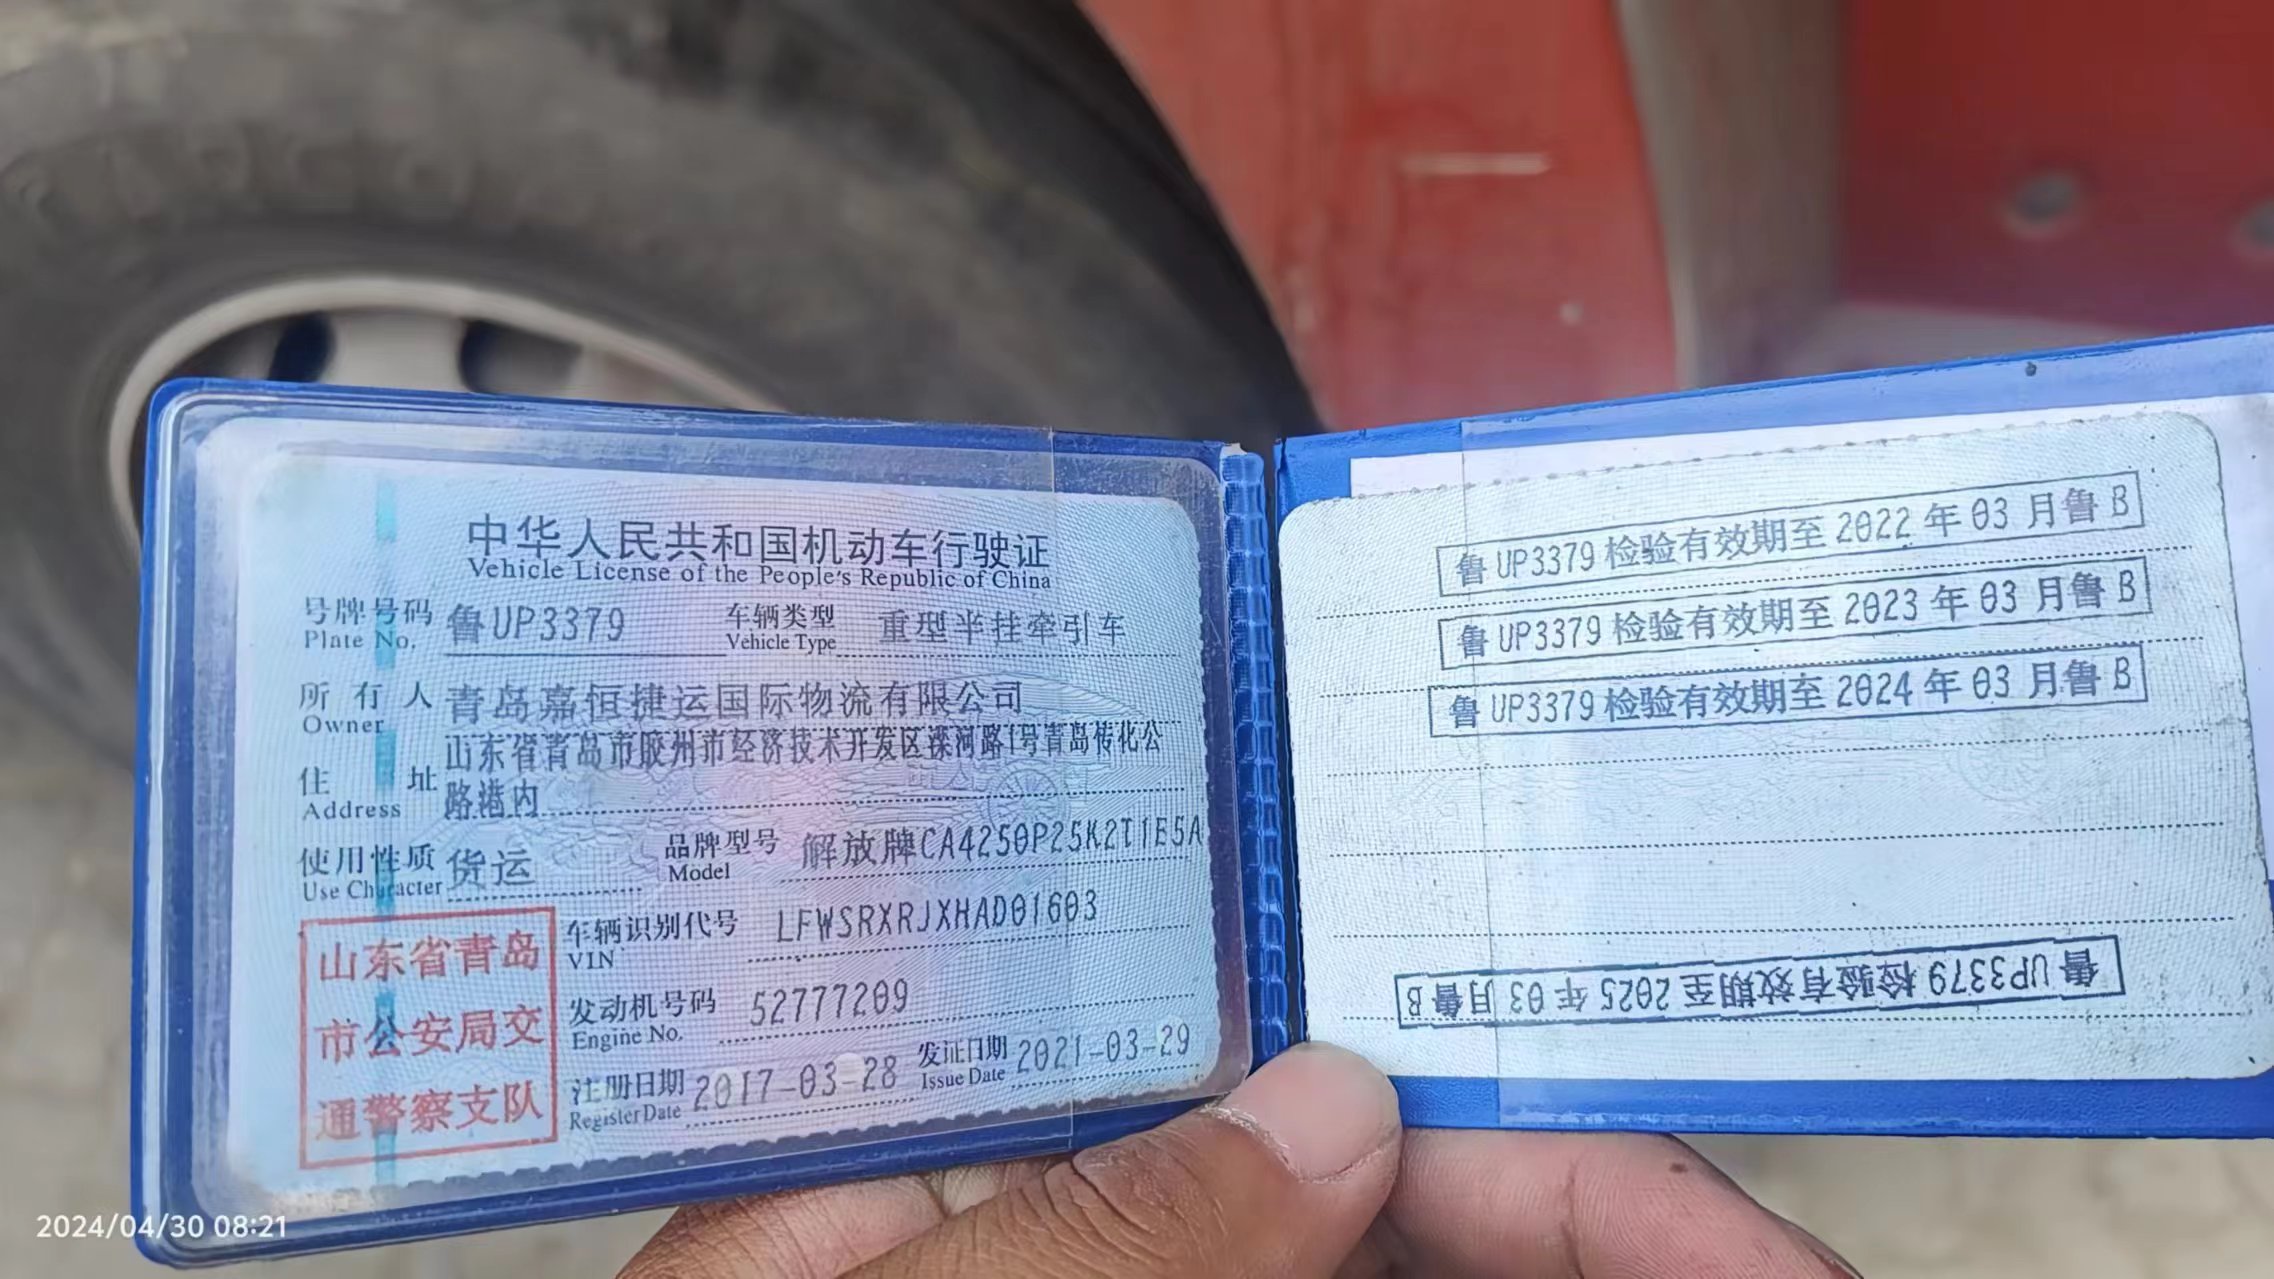 中华人民共和国机动车行驶证
Vehicle License of the People's Republic of China
号牌号码 鲁UP3379 车辆类型 重型半挂牵引车
Plate No. Vehicle Type
所有人 青岛嘉恒捷运国际物流有限公司
Owner
住址 山东省青岛市胶州市经济技术开发区漯河路1号青岛传化公
Address 路港内
使用性质 货运 品牌型号 解放牌CA4250P25K2T1E5A
Use Character Model
山东省青岛
市公安局交
通警察支队
车辆识别代号 LFWSRXRJXHAD01603
VIN
发动机号码 52777209
Engine No.
注册日期 2017-03-28 发证日期 2021-03-29
Register Date Issue Date
鲁UP3379检验有效期至2022年03月鲁B
鲁UP3379检验有效期至2023年03月鲁B
鲁UP3379检验有效期至2024年03月鲁B
鲁UP3379检验有效期至2025年03月鲁B
2024/04/30 08:21